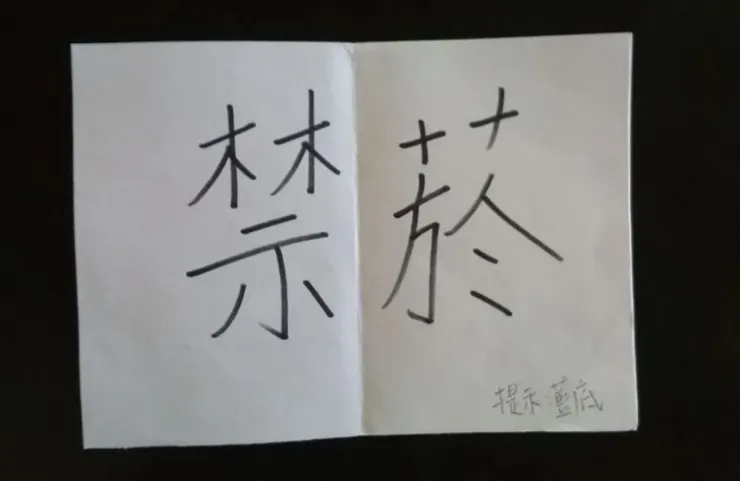 禁菸
提示:藍底